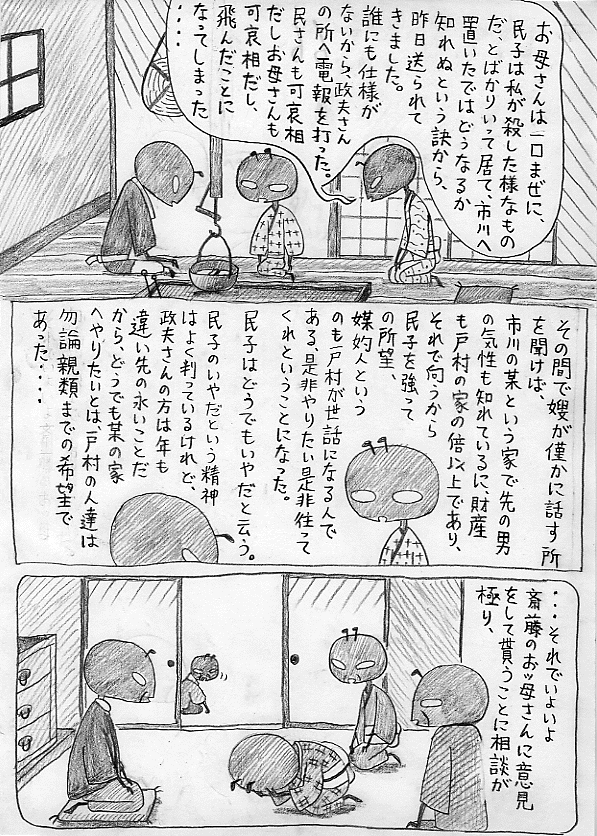 お母さんは一口まぜに、
民子は私が殺した様なもの
だ、とばかりいって居て、市川へ
置いたではどうなるか
知れぬという訣から、
昨日送られて
きました。
誰にも仕様が
ないから、政夫さん
の所へ電報を打った。
民さんも可哀相
だしお母さんも
可哀相だし、
飛んだことに
なってしまった
・・・
その間で嫂が僅かに話す所
を聞けば、
市川の某という家で先の男
の気性も知れているに、財産
も戸村の家の倍以上であり、
それで向うから
民子を強って
の所望、
媒妁人という
のも戸村が世話になるんで
ある、是非やりたい是非往って
くれということになった。
民子はどうでもいやだと云う。
民子のいやだという精神
はよく判っているけれど、
政夫さんの方は年も
違い先の永いことだ
から、どうでも某の家
へやりたいとは、戸村の人達は
勿論親類までの希望で
あった・・・
・・・それでいよいよ
斎藤のおッ母さんに意見
をして貰うことに相談が
極り、